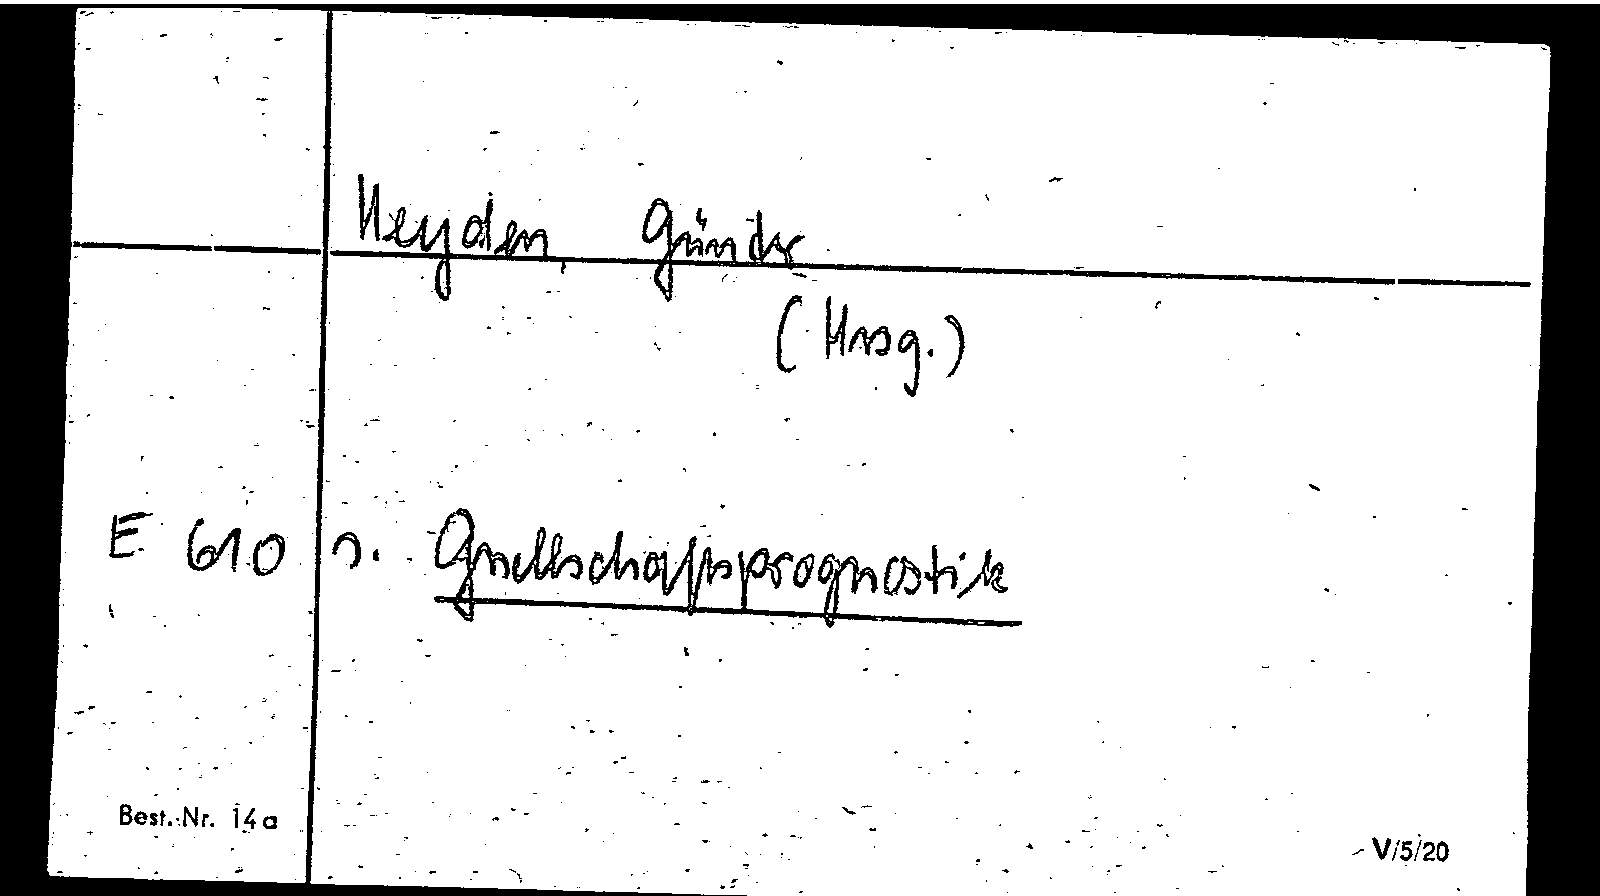 Heyden, Günter
(Hrsg.)
E 610 s. Gesellschaftsprognostik
Best.-Nr. 14a
V/5/20